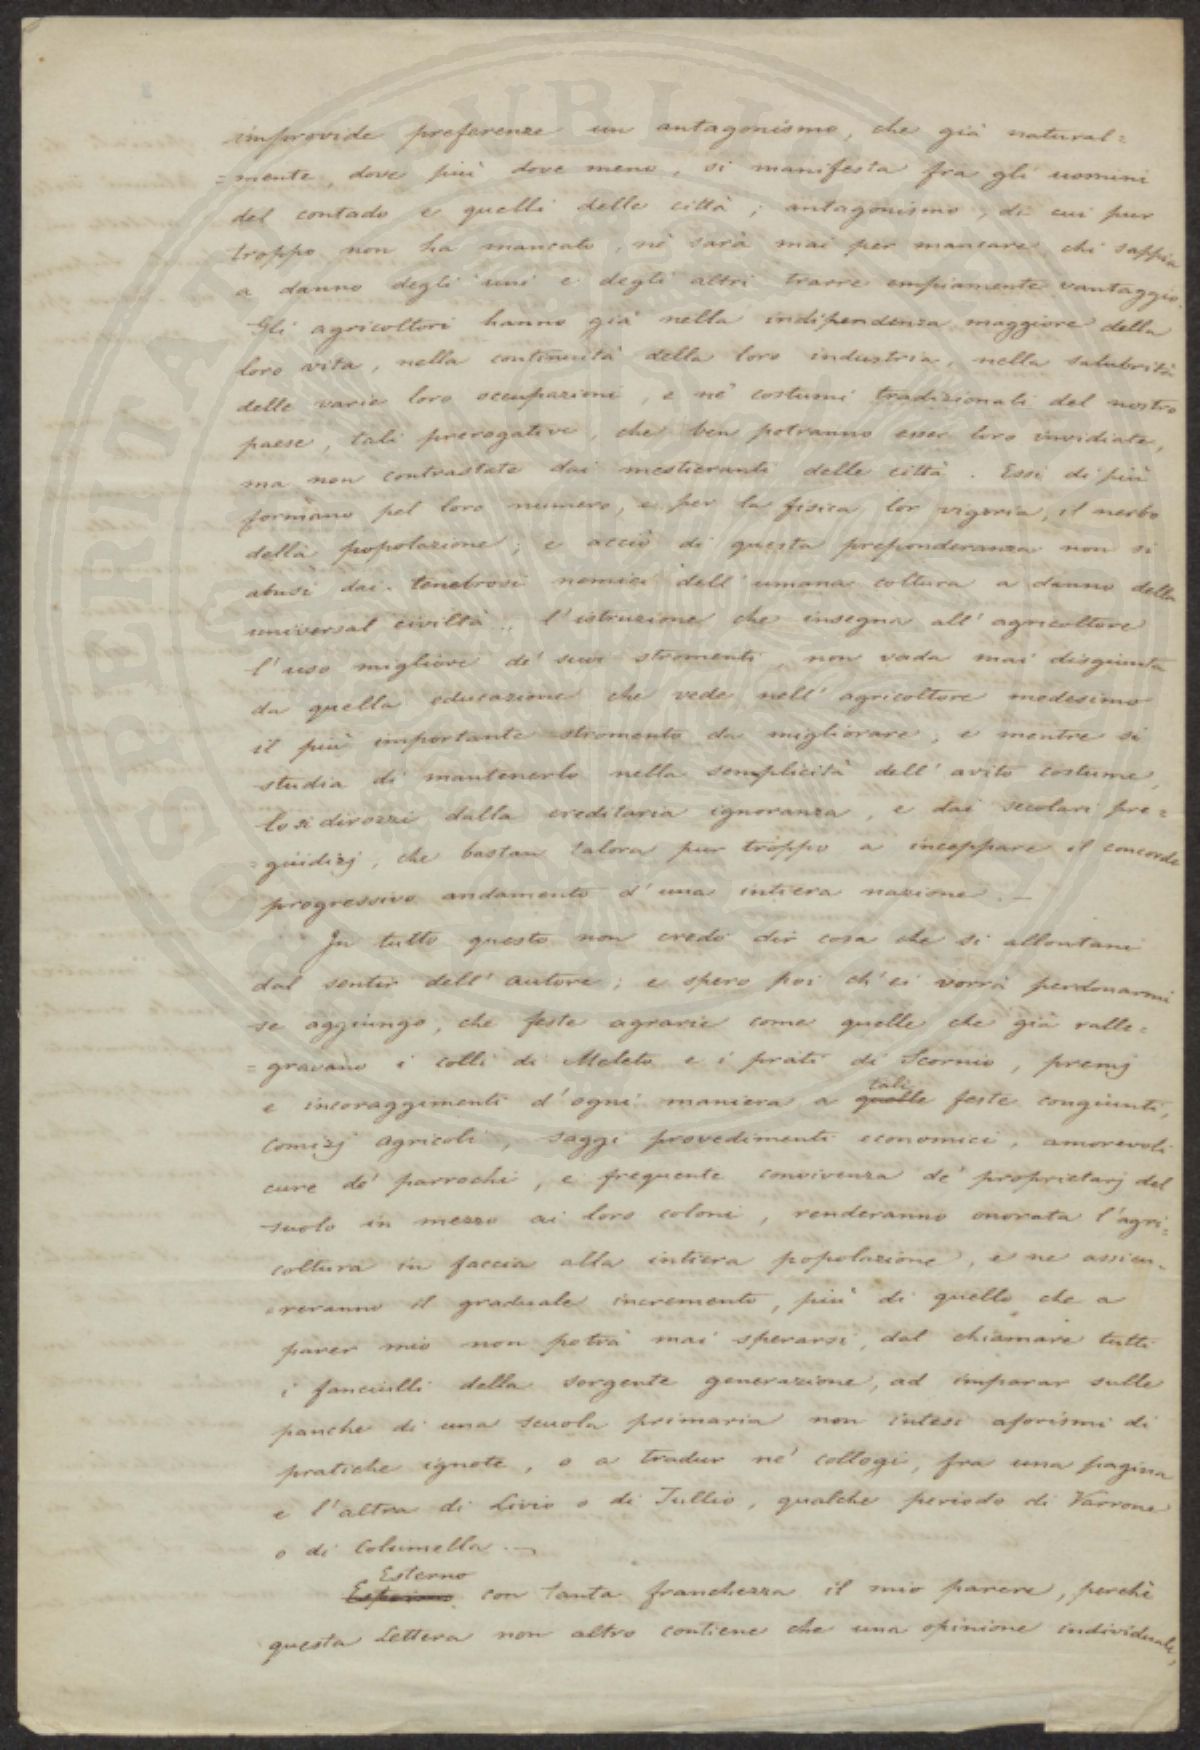 improvide preferenze un antagonismo, che già natural=
=mente, dove più dove meno, si manifesta fra gli uomini
del contado e quelli delle città; antagonismo, di cui pur
troppo non ha mancato, nè sarà mai per mancare chi sappia
a danno degli uni e degli altri trarre empiamente vantaggio.
Gli agricoltori hanno già nella indipendenza maggiore della
loro vita, nella continuità della loro industria, nella salubrità
delle varie loro occupazioni, e ne' costumi tradizionali del nostro
paese, tali prerogative, che ben potranno esser loro invidiate,
ma non contrastate dai mestieranti delle città. Essi di più
formano pel loro numero, e per la fisica lor vigoria, il nerbo
della popolazione; e acciò di questa preponderanza non si
abusi dai tenebrosi nemici dell'umana coltura a danno della
universal civiltà, l'istruzione che insegna all'agricoltore
l'uso migliore de' suoi stromenti, non vada mai disgiunta
da quella educazione che vede nell'agricoltore medesimo
il più importante stromento da migliorare, e mentre si
studia di mantenerlo nella semplicità dell'avito costume,
lo si dirozzi dalla ereditaria ignoranza, e dai secolari pre=
=giudizj, che bastan talora pur troppo a inceppare il concorde
progressivo andamento d'una intiera nazione. —
In tutto questo non credo dir cosa che si allontani
dal sentir dell'autore; e spero poi ch'ei vorrà perdonarmi
se aggiungo, che feste agrarie come quelle che già ralle=
=gravano i colli di Meleto e i prati di Scornio, premj
e incoraggimenti d'ogni maniera a quelle tali feste congiunti,
comizj agricoli, saggi provedimenti economici, amorevoli
cure de' parrochi, e frequente convivenza de' proprietarj del
suolo in mezzo ai loro coloni, renderanno onorata l'agri=
coltura in faccia alla intiera popolazione, e ne assicu=
=reranno il graduale incremento, più di quello che a
parer mio non potrà mai sperarsi, dal chiamare tutti
i fanciulli della sorgente generazione, ad imparar sulle
panche di una scuola primaria non intesi aforismi di
pratiche ignote, o a tradur ne' collegi, fra una pagina
e l'altra di Livio o di Tullio, qualche periodo di Varrone
o di Columella. —
Esterno
con tanta franchezza il mio parere, perchè
questa Lettera non altro contiene che una opinione individuale,